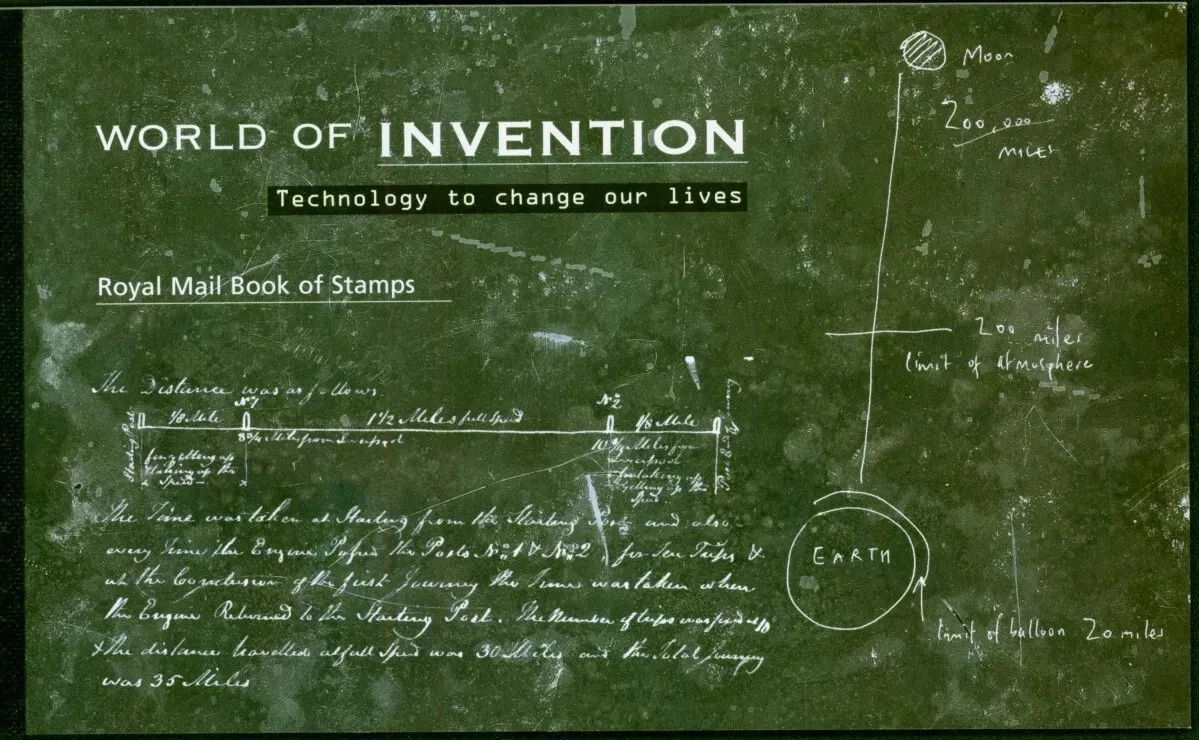 WORLD OF INVENTION
Technology to change our lives
Royal Mail Book of Stamps
Moon
200,000
MILES
200 miles
limit of atmosphere
EARTH
limit of balloon 20 miles
The Distance was as follows
Starting Post
1/8 Mile
No 1
1 1/2 Miles full Speed
No 2
1/8 Mile
Miles from Liverpool
for getting up
taking up the
Speed
10 3/4 Miles from
Liverpool
for taking up
getting up the
Speed
The Time was taken at Starting from the Starting Post and also
every Time the Engine Passed the Posts No 1 & No 2, for Ten Trips &
at the Conclusion of the first Journey the Time was taken when
the Engine Returned to the Starting Post. The Number of trips was fixed up
& the distance travelled at full Speed was 30 Miles and the Total Journey
was 35 Miles